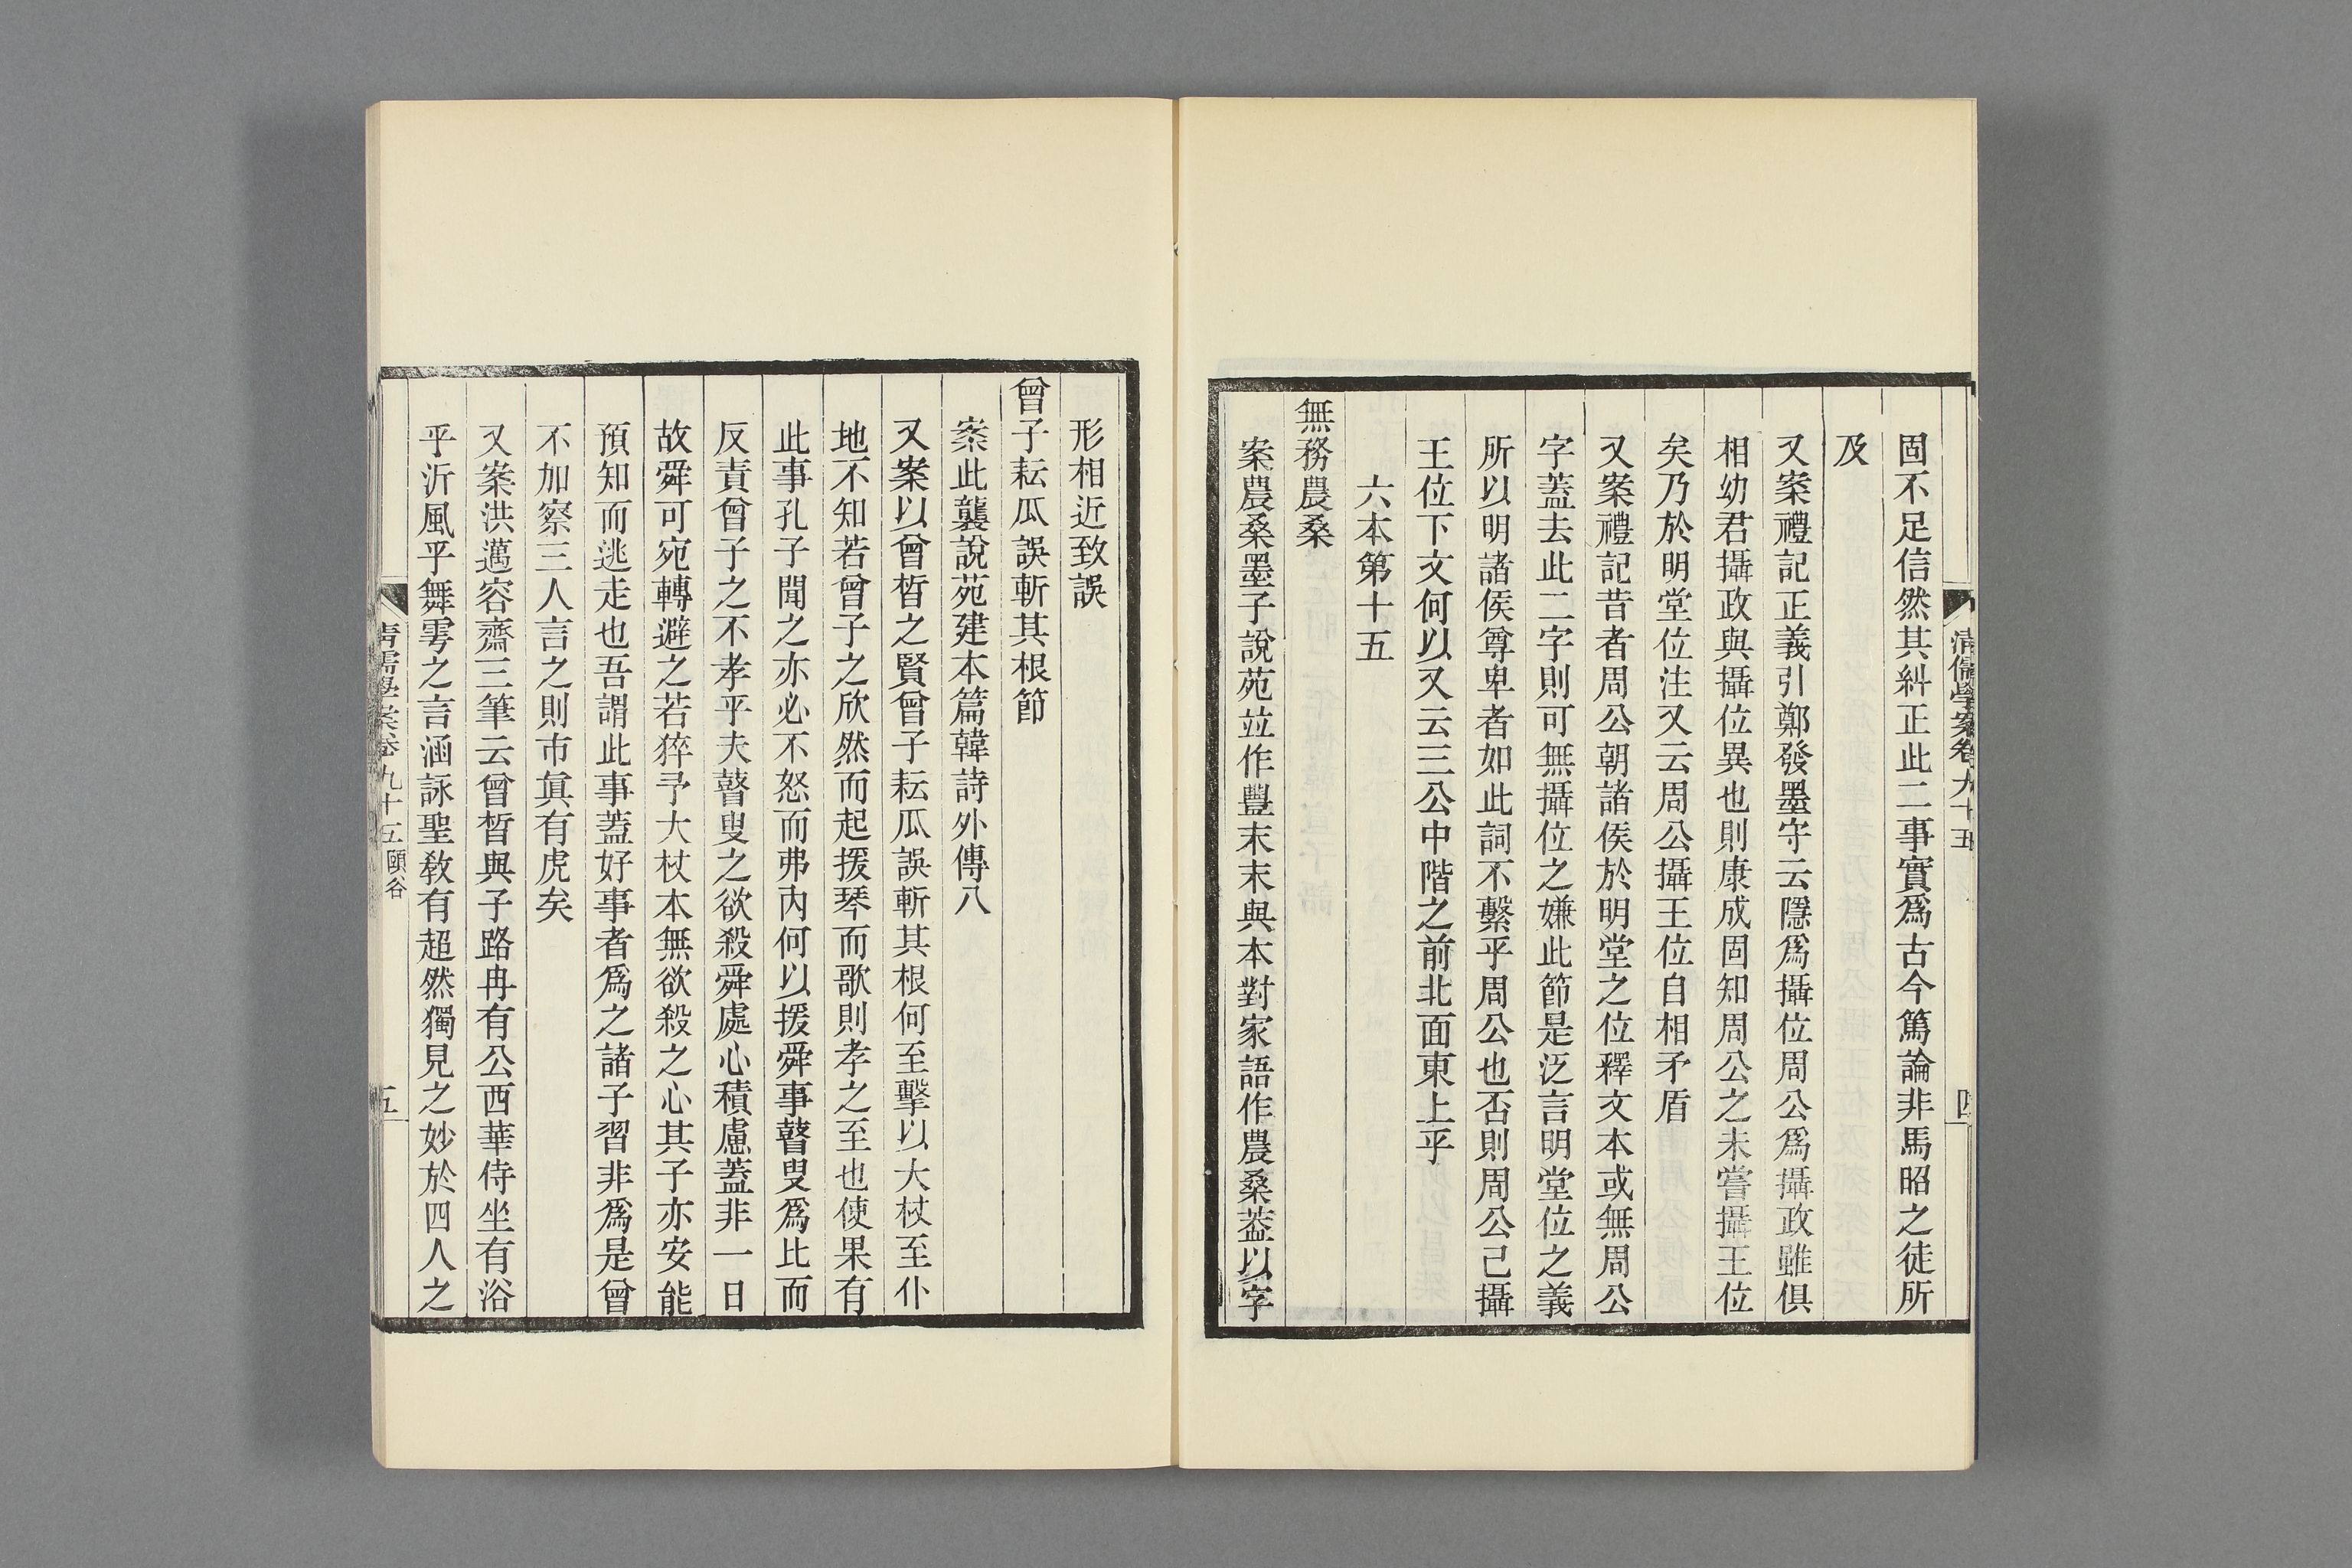 清儒學案卷九十五
四
固不足信然其糾正此二事實爲古今篤論非馬昭之徒所
及
又案禮記正義引鄭發墨守云隱爲攝位周公爲攝政雖俱
相幼君攝政與攝位異也則康成固知周公之未嘗攝王位
矣乃於明堂位注又云周公攝王位自相矛盾
又案禮記昔者周公朝諸侯於明堂之位釋文本或無周公
字蓋去此二字則可無攝位之嫌此節是泛言明堂位之義
所以明諸侯尊卑者如此詞不繫乎周公也否則周公己攝
王位下文何以又云三公中階之前北面東上乎
六本第十五
無務農桑
案農桑墨子說苑竝作豐末末與本對家語作農桑葢以字
形相近致誤
曾子耘瓜誤斬其根節
案此襲說苑建本篇韓詩外傳八
又案以曾晳之賢曾子耘瓜誤斬其根何至擊以大杖至仆
地不知若曾子之欣然而起援琴而歌則孝之至也使果有
此事孔子聞之亦必不怒而弗內何以援舜事瞽叟爲比而
反責曾子之不孝乎夫瞽叟之欲殺舜處心積慮蓋非一日
故舜可宛轉避之若猝予大杖本無欲殺之心其子亦安能
預知而逃走也吾謂此事蓋好事者爲之諸子習非爲是曾
不加察三人言之則市眞有虎矣
又案洪邁容齋三筆云曾晳與子路冉有公西華侍坐有浴
乎沂風乎舞雩之言涵詠聖敎有超然獨見之妙於四人之
清儒學案卷九十五 頤谷
五